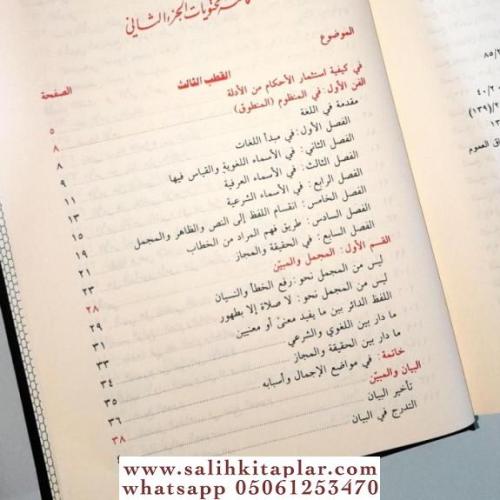 محتويات الجزء الثاني
الموضوع
الصفحة
القطب الثالث
في كيفية استثمار الأحكام من الأدلة ٥
الفن الأول: في المنظوم (المنطوق) ٨
مقدمة في اللغة ٨
الفصل الأول: في مبدأ اللغات ٩
الفصل الثاني: في الأسماء اللغوية والقياس فيها ١١
الفصل الثالث: في الأسماء العرفية ١٣
الفصل الرابع: في الأسماء الشرعية ١٥
الفصل الخامس: انقسام اللفظ إلى النص والظاهر والمجمل ١٩
الفصل السادس: طريق فهم المراد من الخطاب ٢١
الفصل السابع: في الحقيقة والمجاز ٢٣
القسم الأول: المجمل والمبيّن ٢٨
ليس من المجمل نحو: رفع الخطأ والنسيان ٢٩
ليس من المجمل نحو: لا صلاة إلا بطهور ٣١
اللفظ الدائر بين ما يفيد معنىً أو معنيين ٣٣
ما دار بين اللغوي والشرعي ٣٤
ما دار بين الحقيقة والمجاز ٣٥
خاتمة: في مواضع الإجمال وأسبابه ٣٦
البيان والمبيّن ٣٨
تأخير البيان
التدرج في البيان
٤٠/٢
(١٣٩)/٢
العموم
www.salihkitaplar.com
whatsapp 05061253470